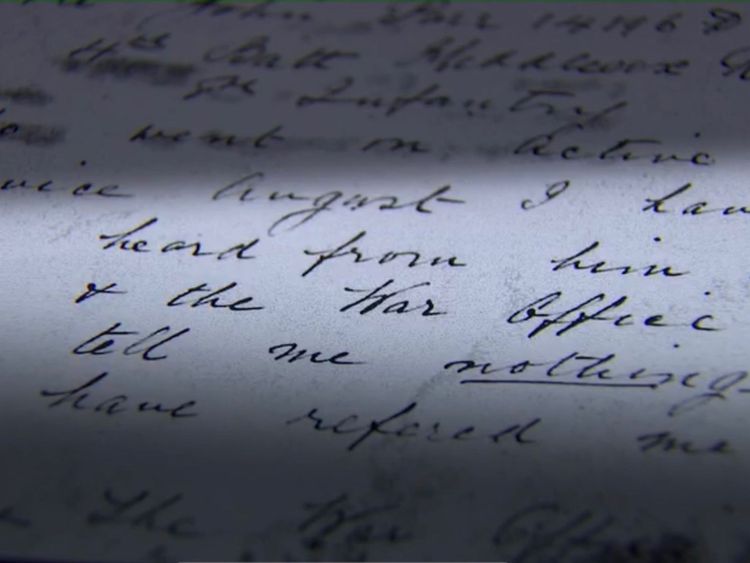 John Parr 14196
4th Batt Middlesex
8th Infantry
went on active
vice August I hav
heard from him
& the War Office
tell me nothing
have refered me
The War Offi